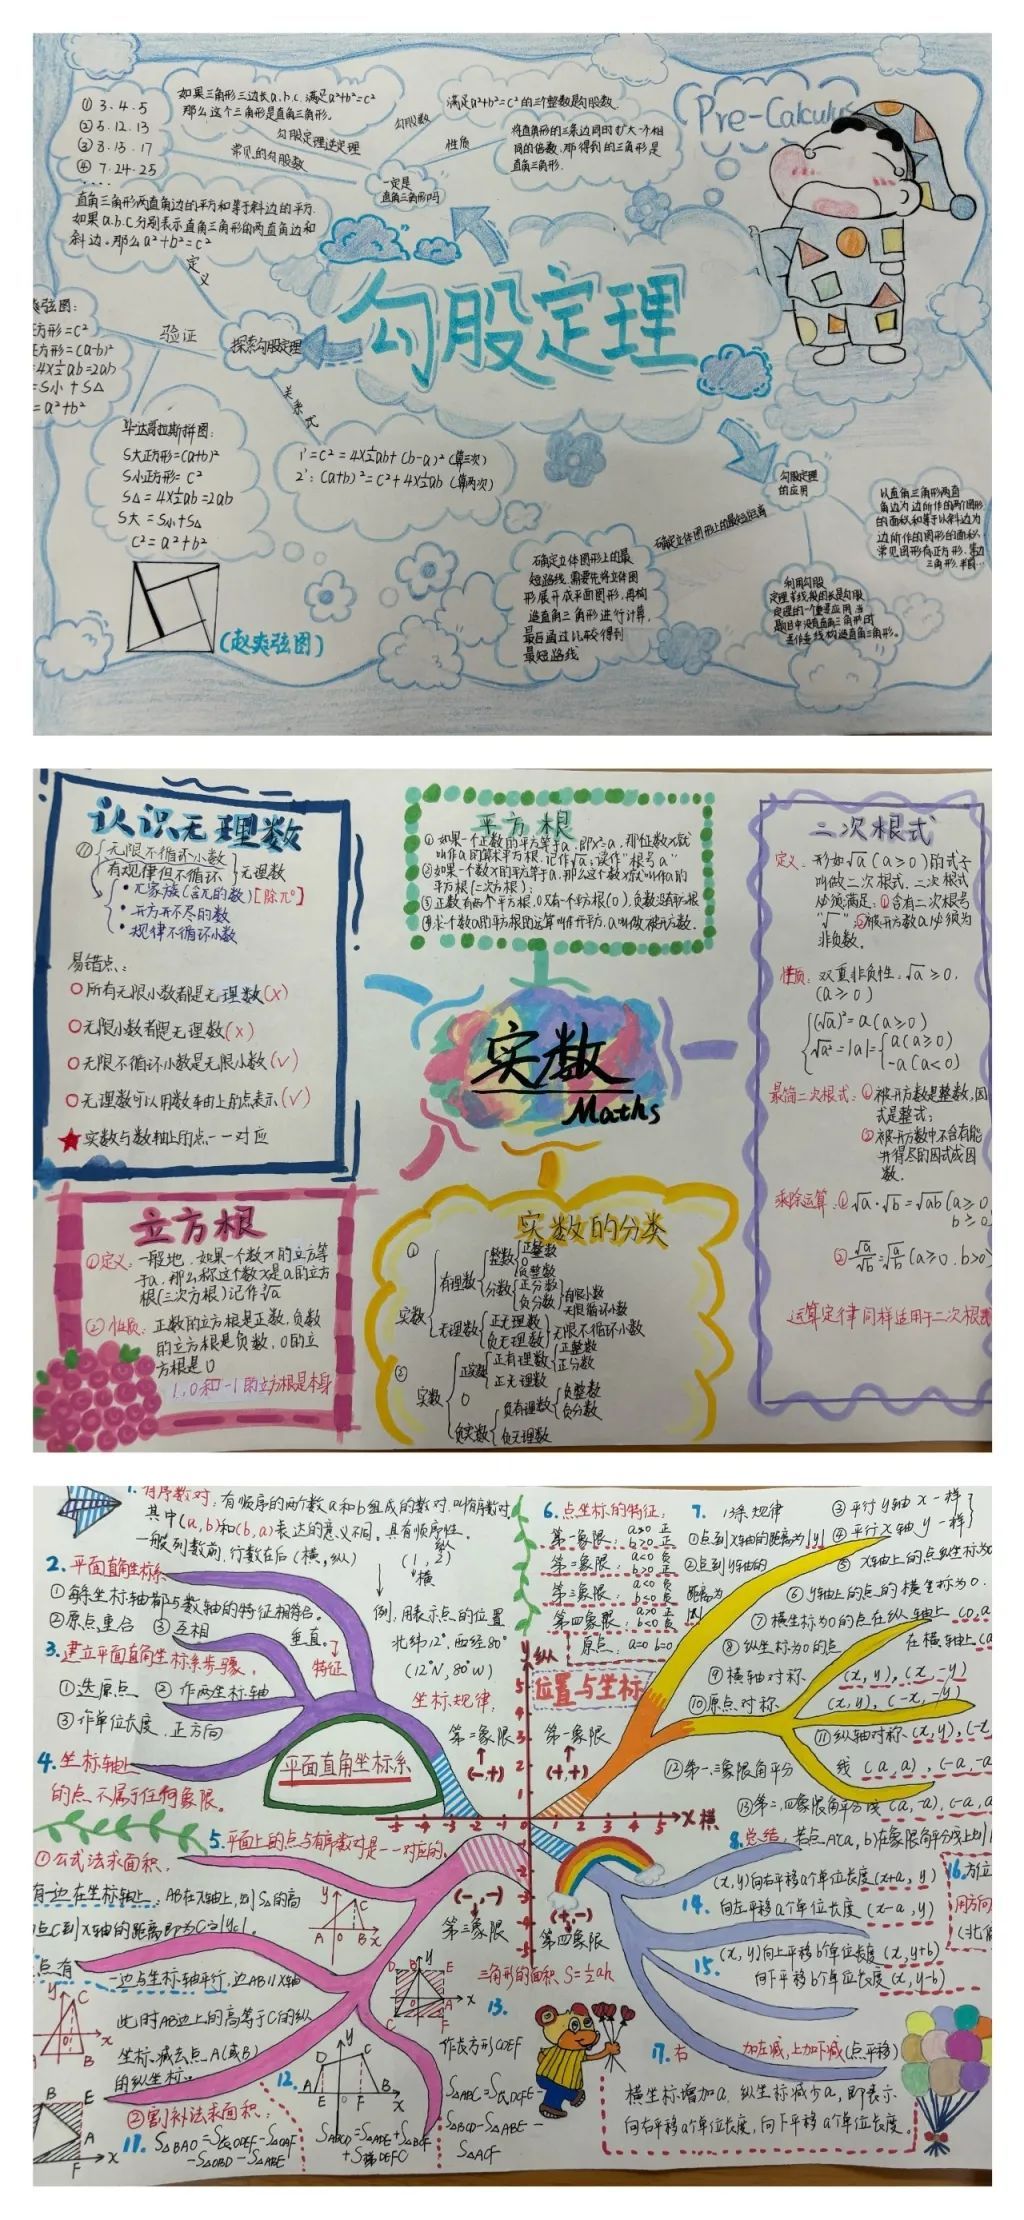 Pre-Calculus
① 3.4.5
② 5.12.13
③ 8.15.17
④ 7.24.25
....
如果三角形三边长a.b.c.满足a²+b²=c²
那么这个三角形是直角三角形。
勾股定理逆定理
常见的勾股数
勾股数
满足a²+b²=c²的三个整数是勾股数.
性质
将直角形的三条边同时扩大一个相
同的倍数,那得到的三角形是
直角三角形.
一定是
直角三角形吗
直角三角形两直角边的平方和等于斜边的平方.
如果a.b.c分别表示直角三角形的两直角边和
斜边。那么a²+b²=c²
定义
勾股定理
探索勾股定理
验证
弦图:
方形=c²
正方形=(a-b)²
=4×½ab=2ab
=S小+S△
=a²+b²
关系式
1°=c²=4×½ab+(b-a)²(算三次)
2°:(a+b)²=c²+4×½ab(算两次)
毕达哥拉斯拼图:
S大正方形=(a+b)²
S小正方形=c²
S△=4×½ab=2ab
S大=S小+S△
c²=a²+b²
(赵爽弦图)
勾股定理
的应用
确定立体图形上的最短距离
确定立体图形上的最
短路线.需要先将立体图
形展开成平面图形,再构
造直角三角形进行计算,
最后通过比较得到
最短路线
以直角三角形两直
角边为边所作的两个图形
的面积和等于以斜边为
边所作的图形的面积,
常见图形有正方形.等边
三角形.半圆…
利用勾股
定理的一个重要应用.当
题目中没有直角三角形时
构造直角三角形。
认识无理数
① 无限不循环小数
有规律但不循环
无理数
• π家族(含π的数)[除π⁰]
• 开方开不尽的数
• 规律不循环小数
易错点:
所有无限小数都是无理数(×)
无限小数都是无理数(×)
无限不循环小数是无限小数(√)
无理数可以用数轴上的点表示(√)
★实数与数轴上的点一一对应
平方根
①如果一个正数的平方等于a,即x²=a,那位数x就
叫作a的算术平方根.记作√a,读作“根号a”
②如果一个数x的平方等于a,那么这个数x就叫作a的
平方根(二次方根);
③正数有两个平方根,0只有一个平方根(0),负数没有平方根
④求一个数a的平方根的运算叫作开平方,a叫做被开方数.
实数
Maths
二次根式
定义:形如√a(a≥0)的式子
叫做二次根式.二次根式
必须满足:①含有二次根号
“√”;②被开方数a必须为
非负数。
性质:双重非负性:√a≥0.
(a≥0)
(√a)²=a(a≥0)
√a²=|a|= a(a≥0)
-a(a<0)
最简二次根式:①被开方数是整数,因
式是整式;
②被开方数中不含有能
开得尽的因式或因
数.
乘除运算:①√a·√b=√ab(a≥0
b≥0
②√a/√b=√a/b(a≥0.b>0)
运算定律同样适用于二次根式
立方根
①定义:一般地.如果一个数x的立方等
于a,那么称这个数x是a的立方
根(三次方根)记作³√a
②性质:正数的立方根是正数,负数
的立方根是负数,0的立
方根是0
1,0和-1的立方根是本身
实数的分类
① 实数
有理数
整数
正整数
0
负整数
分数
正分数
负分数
有限小数
无限循环小数
无理数
正无理数
负无理数
无限不循环小数
② 实数
正实数
正有理数
正整数
正分数
正无理数
0
负实数
负有理数
负整数
负分数
负无理数
1.有序数对:有顺序的两个数a和b组成的数对.叫有序数对
其中(a,b)和(b,a)表达的意义不同,具有顺序性.
一般列数前,行数在后(横,纵)
纵
(1,2)
横
2.平面直角坐标系
①每条坐标轴都与数轴的特征相符合。
②原点重合 ③互相
垂直.
特征
例.用表示点的位置
北纬12°,西经80°
(12°N,80°W)
3.建立平面直角坐标系步骤.
①选原点 ②作两坐标轴
③作单位长度.正方向
坐标规律:
4.坐标轴上
的点不属于任何象限。
平面直角坐标系
第二象限
(-,+)
第一象限
(+,+)
y纵
位置与坐标
x横
-5 -4 -3 -2 -1 0 1 2 3 4 5
6.点坐标的特征.
第一象限: a>0 正 b>0 正
第二象限: a<0 负 b>0 正
第三象限: a<0 负 b<0 负
第四象限: a>0 正 b<0 负
原点: a=0 b=0
7. 13条规律
①点到x轴的距离为|y|
②点到y轴的
距离为
|x|
③平行y轴 x一样
④平行x轴 y一样
⑤ x轴上的点纵坐标为0
⑥y轴上的点的横坐标为0.
⑦横坐标为0的点在纵轴上 (0,a
⑧纵坐标为0的点
在横轴上(a
⑨横轴对称 (x,y),(x,-y)
⑩原点对称 (x,y),(-x,-y)
⑪纵轴对称.(x,y),(-x
⑫第一.三象限角平分
线 (a,a),(-a,-a
⑬第二.四象限角平分线(a,-a),(-a,a
5.平面上的点与有序数对是一一对应的.
①公式法求面积.
有一边在坐标轴上:AB在x轴上,则S△的高
点C到x轴的距离即为C≥|yc|.
一边与坐标轴平行.边AB∥x轴
此时AB边上的高等于C的纵
坐标.减去点A(或B)
的纵坐标.
②割补法求面积:
11. S△BAO=S长ODEF-S△OAF
-S△OBD-S△ABE
12.
SABCD=S△ADE+S△BCF
+S梯DEFC
(-,-)
第三象限
(+,-)
第四象限
三角形的面积 S=½ah
13.
作长方形CDEF
S△ABC=S长DCFE-
S△BCD-S△ABE-
S△ACF
8.总结:若点A(a,b)在象限角平分线上则
14. (x,y)向右平移a个单位长度(x+a,y)
向左平移a个单位长度(x-a,y)
15. (x,y)向上平移b个单位长度(x,y+b)
向下平移b个单位长度(x,y-b)
16.方位
用方向
(北偏
17.右
加左减,上加下减(点平移)
横坐标增加a.纵坐标减少a,即表示
向右平移a个单位长度,向下平移a个单位长度。